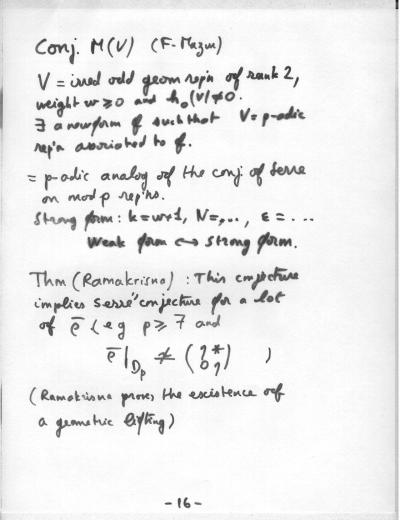 Conj. M(V) (F-Mazur)
V = irred odd geom repn of rank 2,
weight w ≥ 0 and h₀(V) ≠ 0.
∃ a newform f such that V = p-adic
rep'n associated to f.
= p-adic analog of the conj of Serre
on mod p rep'ns.
Strong form: k = w+1, N = ..., ε = ...
Weak form ⟷ strong form.
Thm (Ramakrisna) : This conjecture
implies Serre's conjecture for a lot
of ρ̄ (e g p ≥ 7 and
ρ̄|D_p ≄ (? * / 0 ?) )
(Ramakrisna proves the existence of
a geometric lifting)
-16-